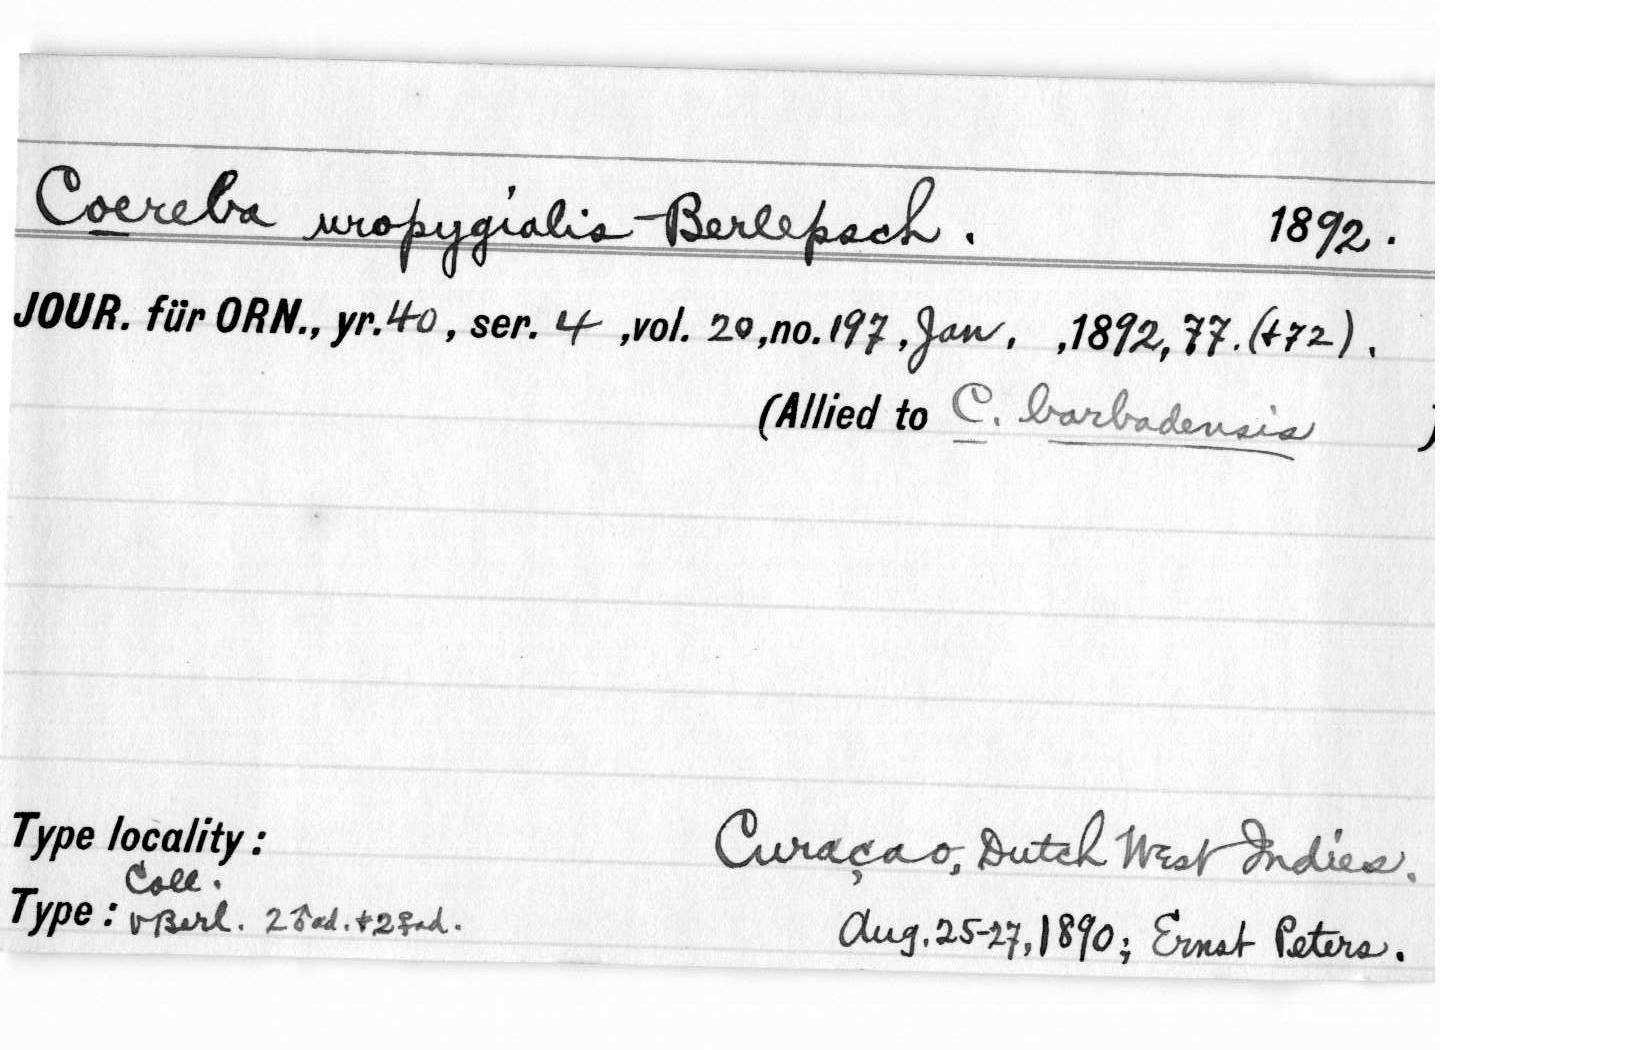 Coereba uropygialis Berlepsch. 1892.
JOUR. für ORN., yr. 40, ser. 4, vol. 20, no. 197, Jan., ,1892, 77. (+72).
(Allied to C. barbadensis )
Type locality: Curaçao, Dutch West Indies.
Coll.
Type: v Berl. 2 ♂ad. + 2 ♀ad. Aug. 25-27, 1890; Ernst Peters.